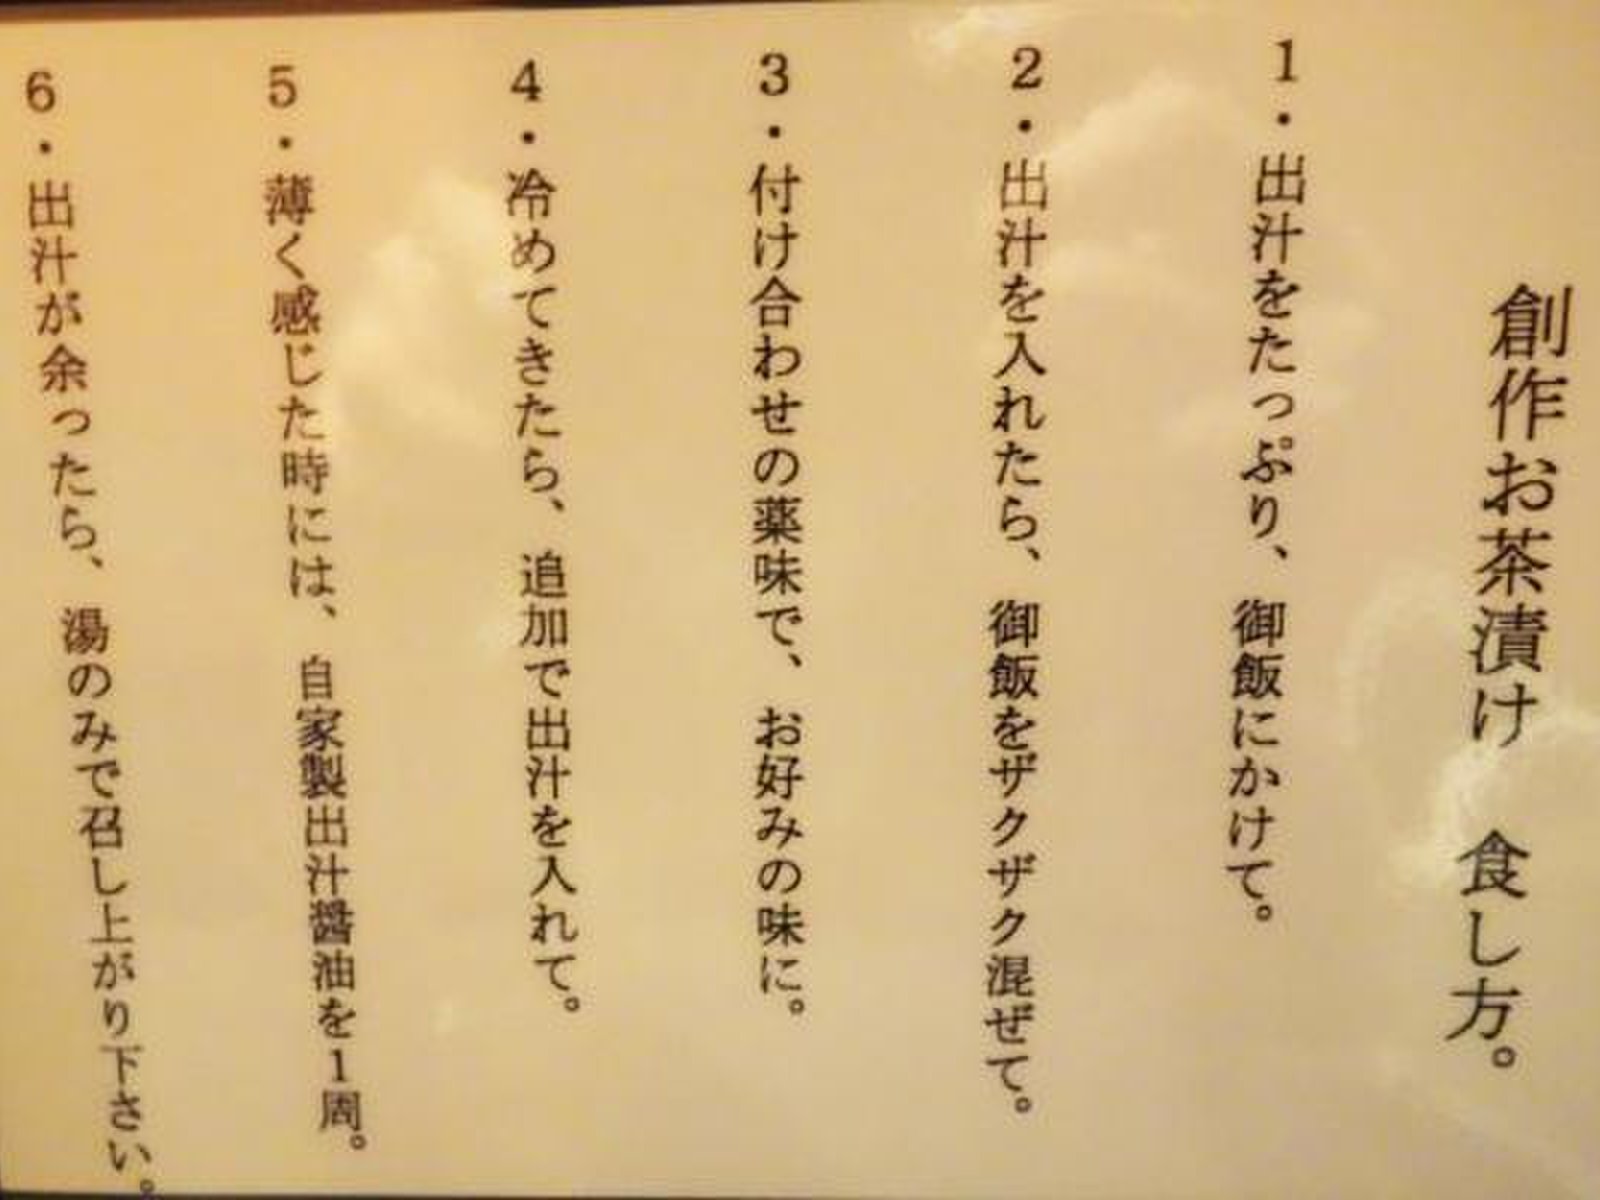 創作お茶漬け　食し方。
1・出汁をたっぷり、御飯にかけて。
2・出汁を入れたら、御飯をザクザク混ぜて。
3・付け合わせの薬味で、お好みの味に。
4・冷めてきたら、追加で出汁を入れて。
5・薄く感じた時には、自家製出汁醤油を1周。
6・出汁が余ったら、湯のみで召し上がり下さい。